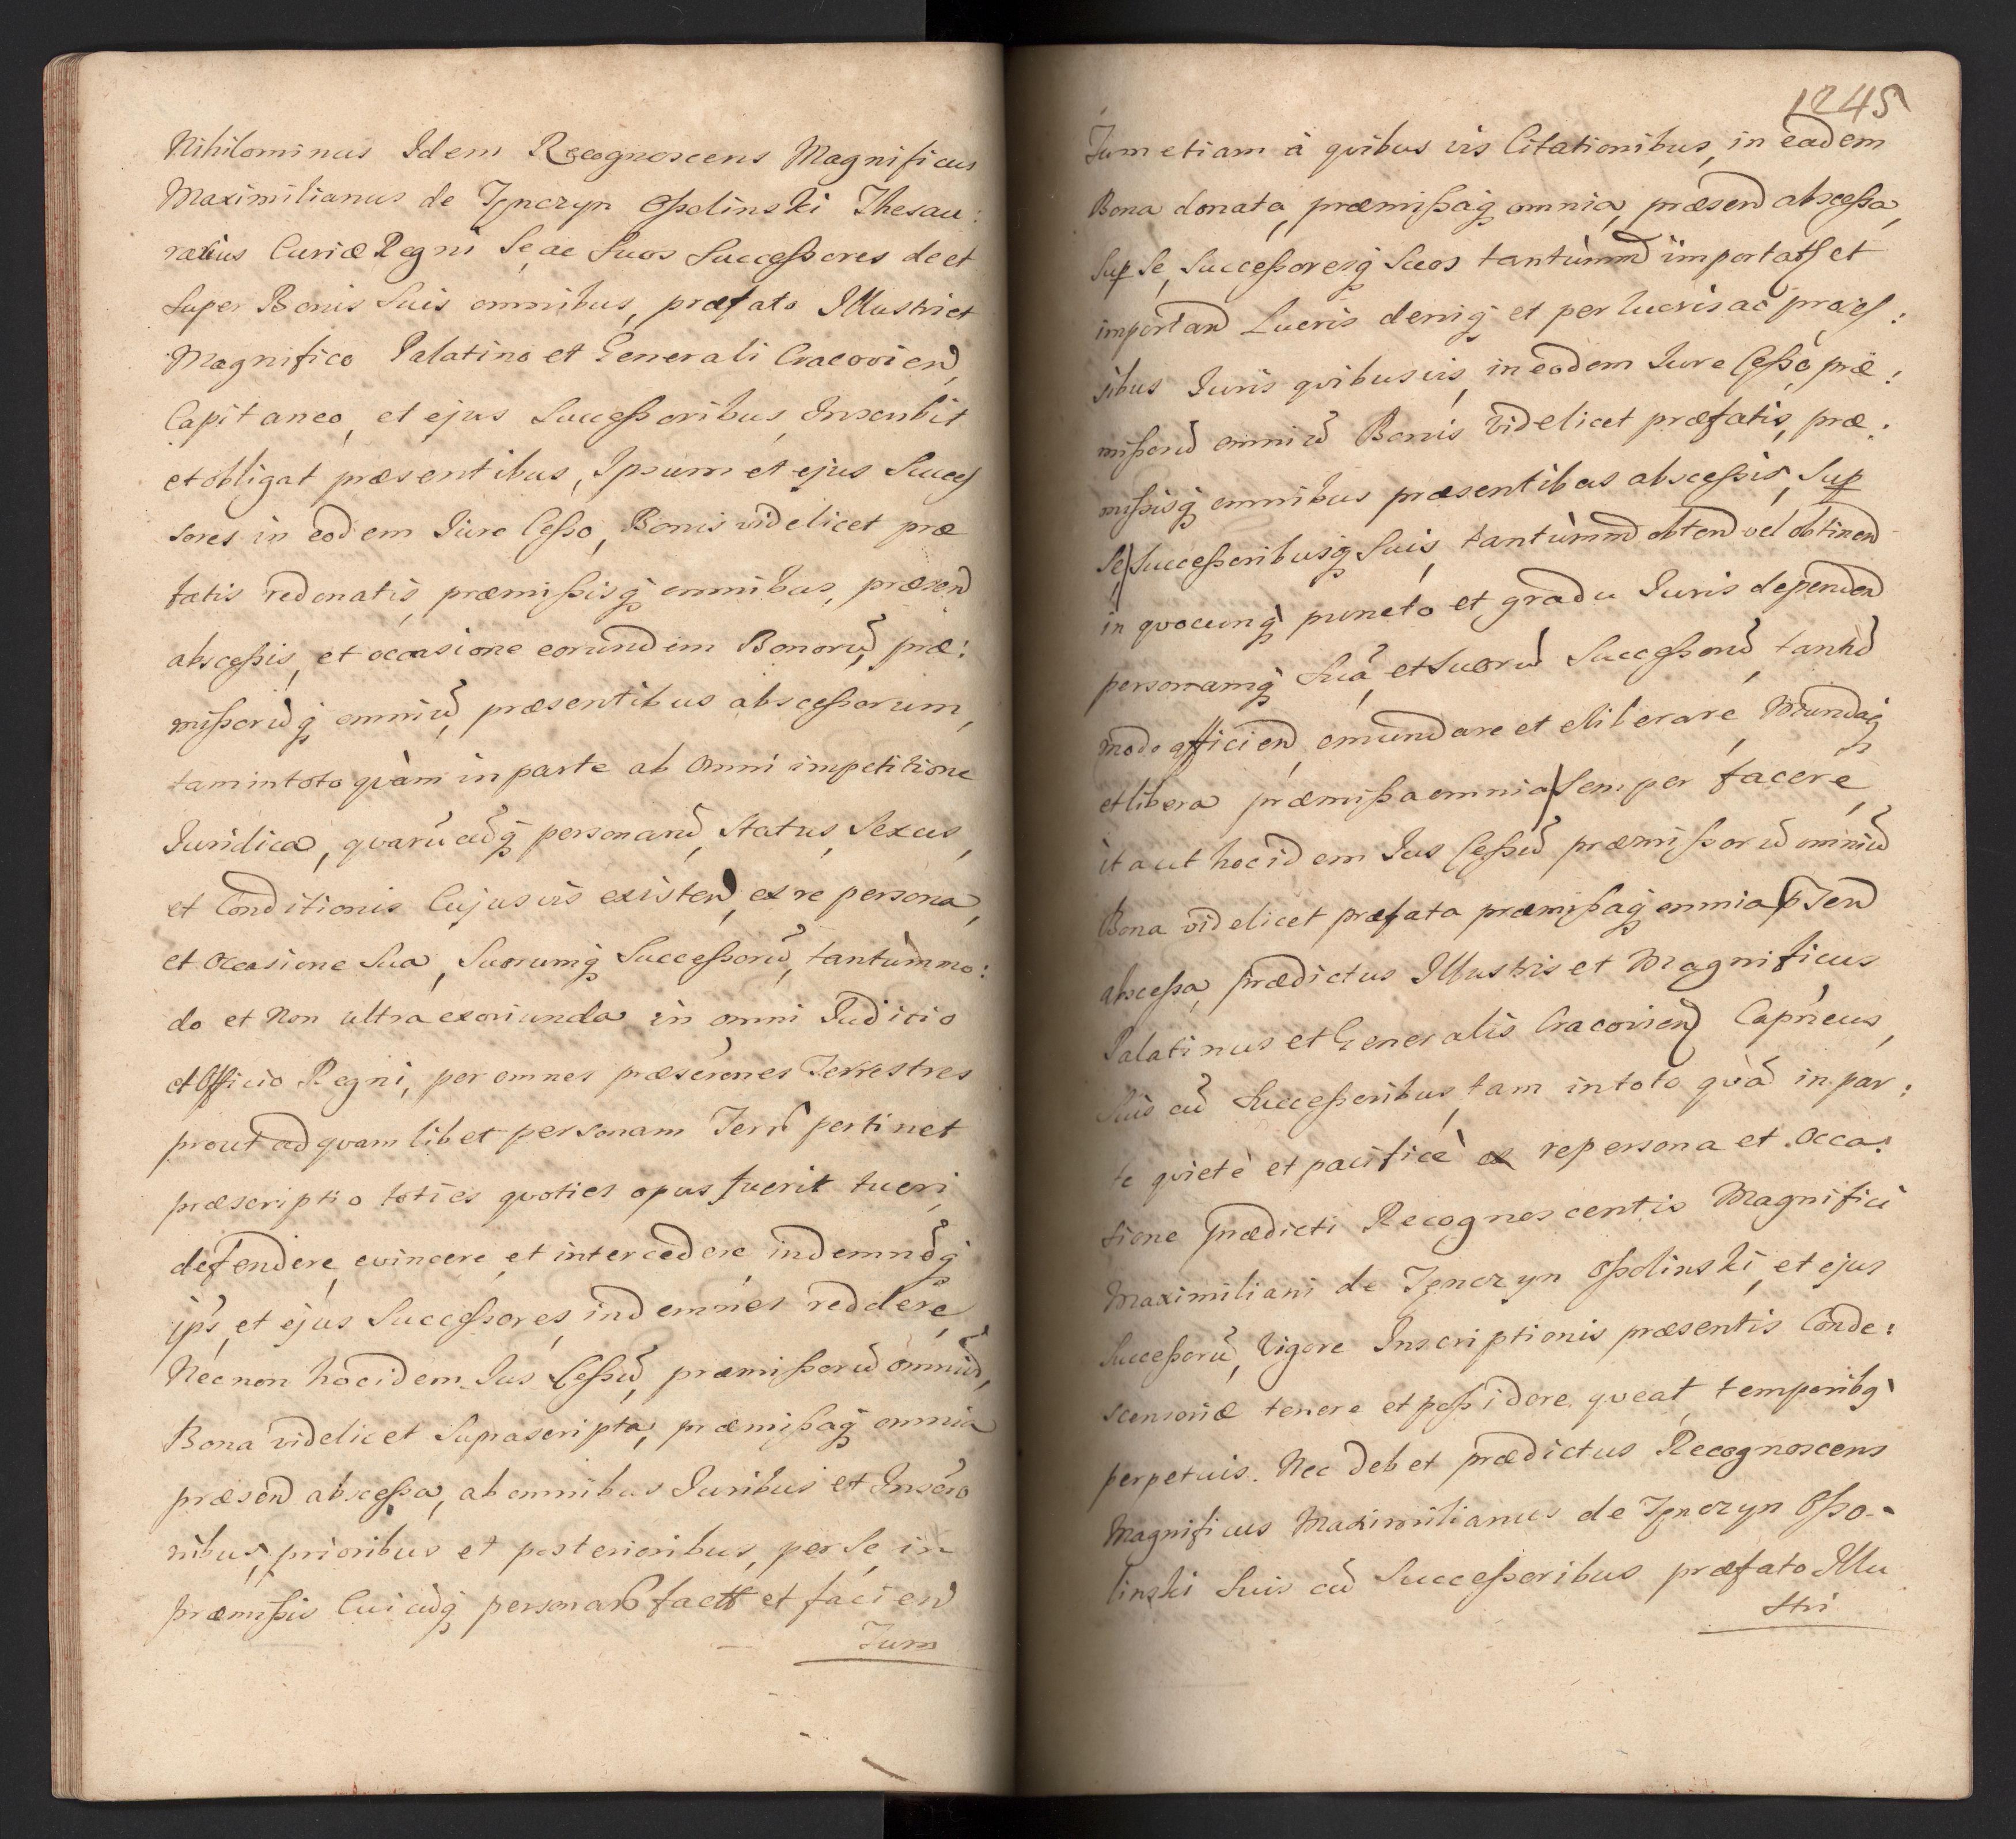 Nihilominus Idem Recognoscens Magnificus
Maximilianus de Tęnczyn Ossolinski Thesau:
rarius Curiæ Regni Se ac Suos Successores de et
Super Bonis Suis omnibus, præfato Illustri et
Magnifico Palatino et Generali Cracovien,
Capitaneo, et ejus Successoribus Inscribit
et obligat præsentibus, Ipsum et ejus Succes
sores in eodem Iure Cesso, Bonis videlicet præ
fatis redonatis, præmissisq omnibus, præsen
abscessis, et occasione eorundem Bonoru, præ:
missoruq omniu, præsentibus abscessorum,
tam in toto quàm in parte ab Omni impetitione
Iuridica, quarucuq personaru, Status, Sexus,
et Conditionis Cujusvis existen, ex re persona,
et Occasione Sua, Suorumq Successoru, tantùmmo:
do et Non ultra exoriunda in omni Iuditio
et Officio Regni, per omnes præscrones Terrestres
prout ad quamlibet personam Terr pertinet
præscriptio toties quoties opus fuerit tueri,
defendere, evincere, et intercedere, indemnq
ips, et ejus Successores, indemnes reddere,
Necnon hoc idem Ius Cessu, præmissoru omniu,
Bona videlicet Suprascripta, præmissaq omnia
præsen abscessa, ab omnibus Iuribus et Inscrio
nibus, prioribus et posterioribus, per Se, in
præmissis Cuicuq personar fact et facien
Tum
1245
Tum etiam à quibus vis Citationibus, in eadem
Bona donata, præmissaq omnia, præsen abscessa,
Sup Se, Successoresq Suos tantùmm importat et
importan Lucris deniq et perlucris ac proces:
sibus Iuris quibusvis, in eodem Iure Cesso, præ:
missoru omniu Bonis videlicet præfatis, præ:
missisq omnibus præsentibus abscessis, Sup
Se Successoribusq Suis, tantùmm obten vel obtinen
in quocunq puncto et gradu Iuris dependen
personamq Sua et Suoru Successoru, tantu
modo afficien, emundare et eliberare, Mundaq
et libera præmissa omnia Semper facere,
ita ut hoc idem Ius Cessu præmissoru omniu
Bona videlicet præfata præmissaq omnia pssen
abscessa, prædictus Illustris et Magnificus
Palatinus et Generalis Cracovien Capneus,
Suis cu Successoribus, tam in toto quà in par:
te quietè et pacificè ex re persona et Occa:
sione prædicti Recognoscentis Magnifici
Maximiliani de Tęnczyn Ossolinski, et ejus
Successoru, Vigore Inscriptionis præsentis Conde:
scensoriæ tenere et possidere queat, temporibq
perpetuis. Nec debet prædictus Recognoscens
Magnificus Maximilianus de Tęnczyn Osso-
linski Suis cu Successoribus præfato Illu
stri